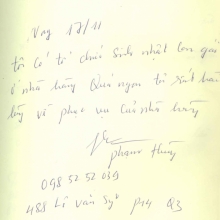 Ngày 17/11
tôi có tổ chức sinh nhật con gái
ở nhà hàng Quá ngon tôi rất hài
lòng về phục vụ của nhà hàng
Phạm Hùng
098 52 52 039
488 Lê Văn Sỹ P14 Q3